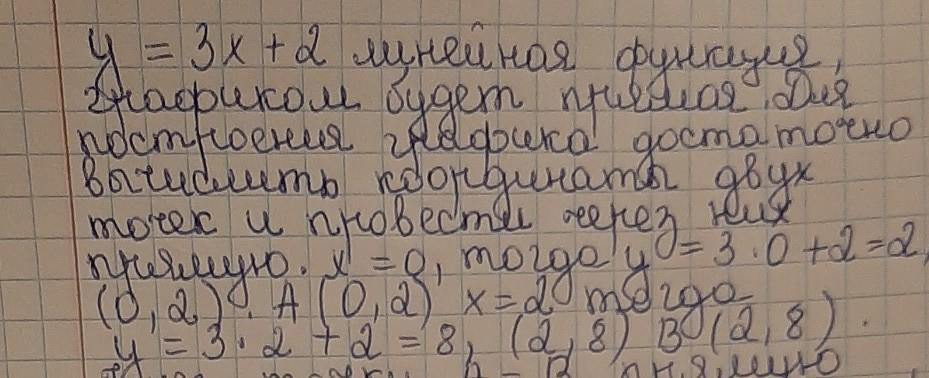 y = 3x + 2 линейная функция,
графиком будет прямая. Для
построения графика достаточно
вычислить координаты двух
точек и провести через них
прямую. x = 0, тогда y = 3 · 0 + 2 = 2,
(0, 2). A (0, 2) x = 2 тогда
y = 3 · 2 + 2 = 8, (2, 8) B (2, 8).
точки A - B прямую